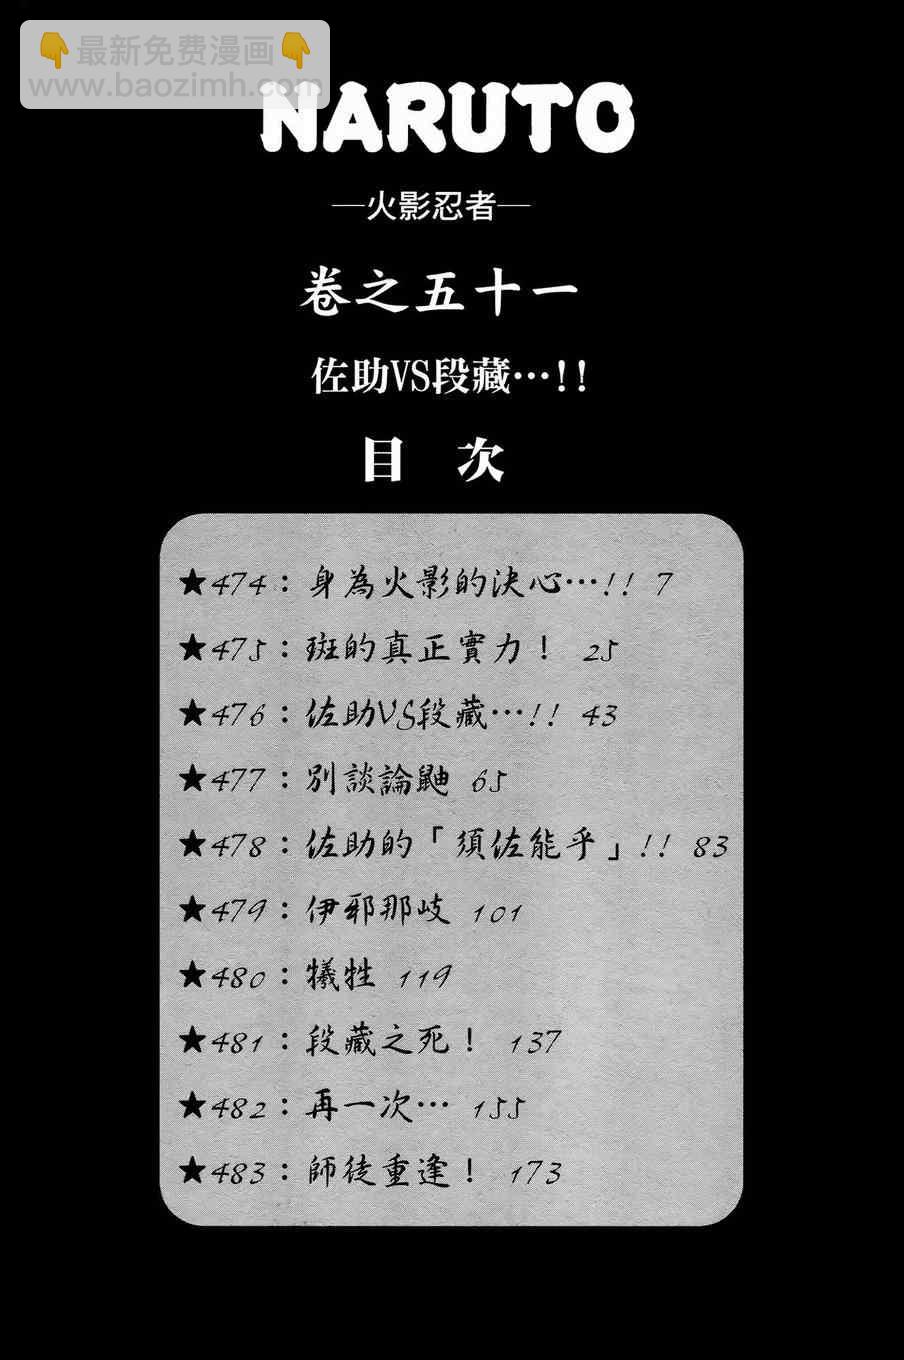 👇最新免费漫画👇
www.baozimh.com
NARUTO
—火影忍者—
卷之五十一
佐助VS段藏…!!
目 次
★474：身為火影的決心…!! 7
★475：斑的真正實力！ 25
★476：佐助VS段藏…!! 43
★477：別談論鼬 65
★478：佐助的「須佐能乎」!! 83
★479：伊邪那岐 101
★480：犧牲 119
★481：段藏之死！ 137
★482：再一次… 155
★483：師徒重逢！ 173